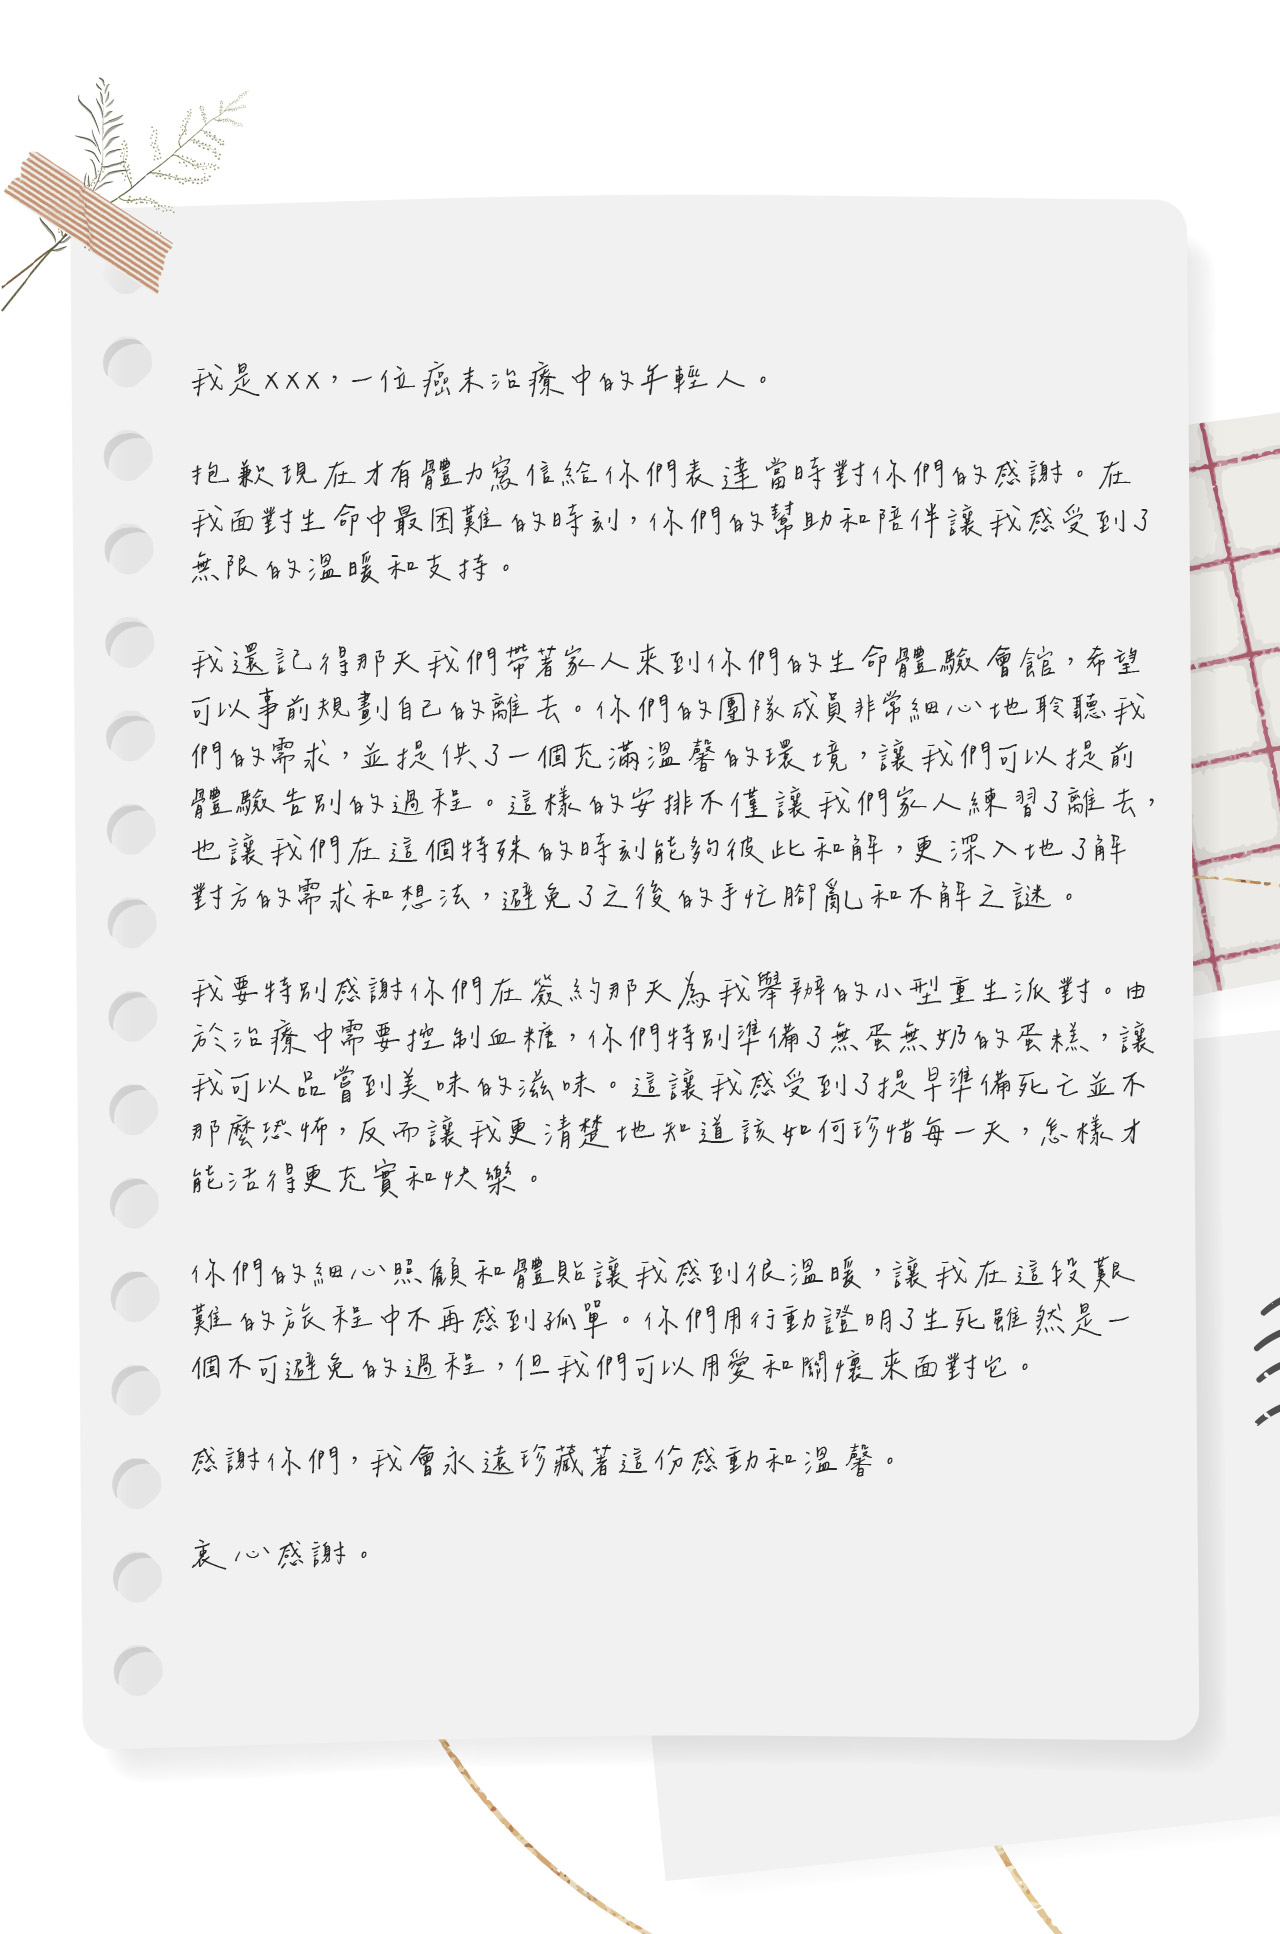 我是xxx，一位癌末治療中的年輕人。
抱歉現在才有體力寫信給你們表達當時對你們的感謝。在
我面對生命中最困難的時刻，你們的幫助和陪伴讓我感受到了
無限的溫暖和支持。
我還記得那天我們帶著家人來到你們的生命體驗會館，希望
可以事前規劃自己的離去。你們的團隊成員非常細心地聆聽我
們的需求，並提供了一個充滿溫馨的環境，讓我們可以提前
體驗告別的過程。這樣的安排不僅讓我們家人練習了離去，
也讓我們在這個特殊的時刻能夠彼此和解，更深入地了解
對方的需求和想法，避免了之後的手忙腳亂和不解之謎。
我要特別感謝你們在簽約那天為我舉辦的小型重生派對。由
於治療中需要控制血糖，你們特別準備了無蛋無奶的蛋糕，讓
我可以品嘗到美味的滋味。這讓我感受到了提早準備死亡並不
那麼恐怖，反而讓我更清楚地知道該如何珍惜每一天，怎樣才
能活得更充實和快樂。
你們的細心照顧和體貼讓我感到很溫暖，讓我在這段艱
難的旅程中不再感到孤單。你們用行動證明了生死雖然是一
個不可避免的過程，但我們可以用愛和關懷來面對它。
感謝你們，我會永遠珍藏著這份感動和溫馨。
衷心感謝。